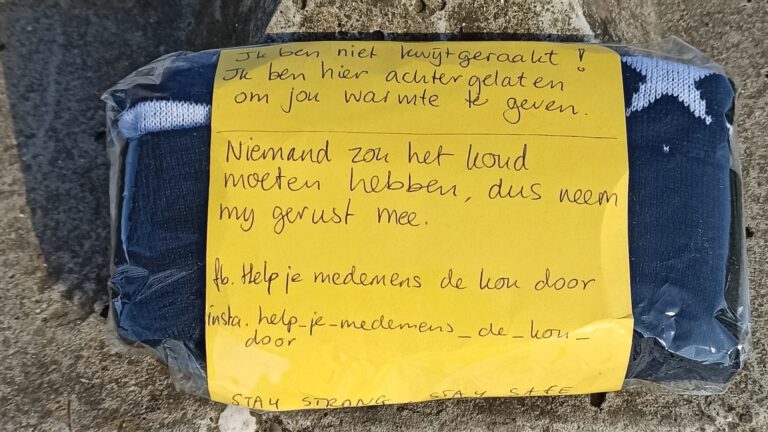 Ik ben niet kwijtgeraakt!
Ik ben hier achtergelaten
om jou warmte te geven.
Niemand zou het koud
moeten hebben, dus neem
my gerust mee.
fb. Help je medemens de kou door
insta. help_je_medemens_de_kou_
door
STAY STRONG, STAY SAFE